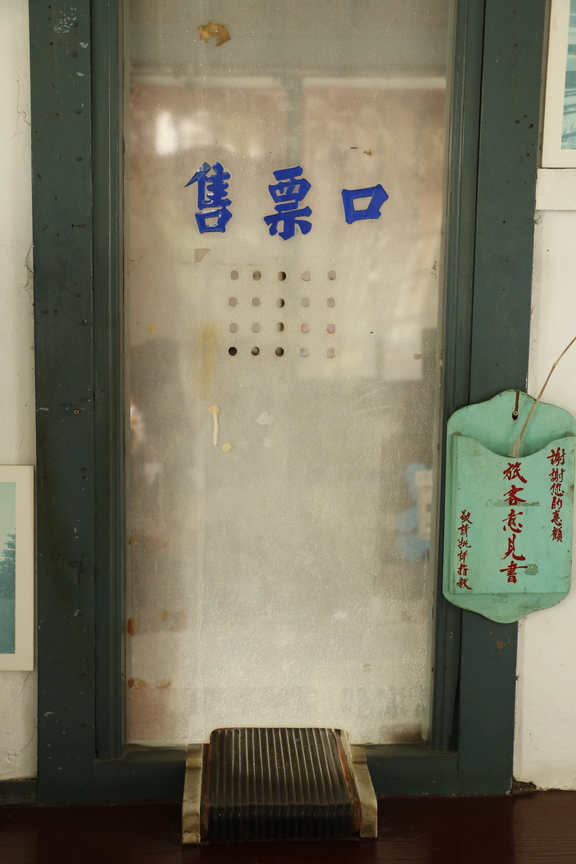 售票口
謝謝您的惠顧
旅客意見書
敬請批評指教